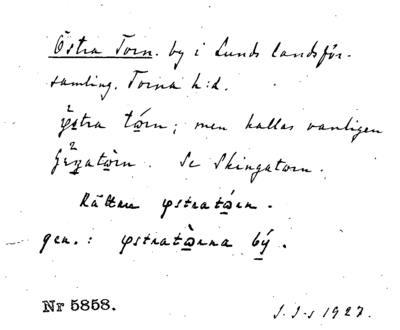 Östra Torn. by i Lunds landsför-
samling. Torna h:d.
östra tórn; men kallas vanligen
Se Skingatorn.
Rättare østratóren.
gen.: østratòrna bý.
Nr 5858.
1927.